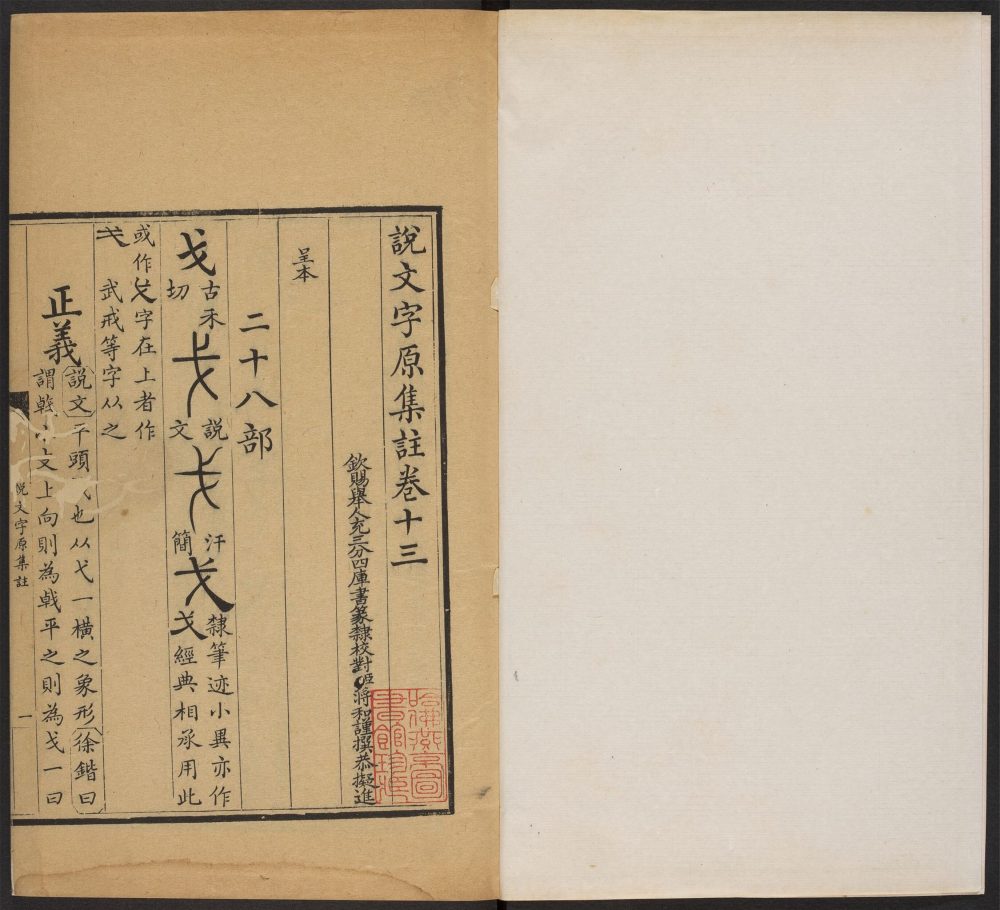 說文字原集註卷十三
欽賜舉人充三分四庫書篆隸校對臣蔣和謹撰恭擬進
呈本
二十八部
戈 古禾切 戈 說文 戈 汗簡 戈 隸筆迹小異亦作戈經典相承用此
或作戈字在上者作
戈 武戒等字从之
正義 說文平頭也从弋一橫之象形徐鍇曰
謂戟小支上向則為戟平之則為戈一曰
說文字原集註
一
哈佛燕京圖書館珍